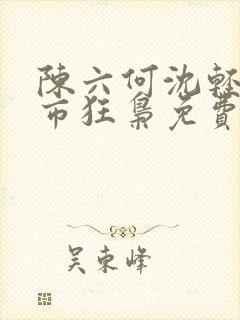 陳六何沈輕
市狂梟免費
吴東峰